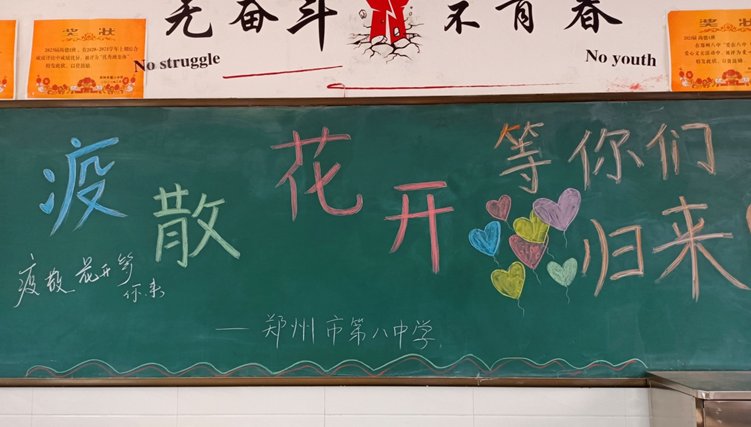 奖状
无奋斗 不青春
No struggle
No youth
奖状
疫散花开 等你们
归来
疫散花开等
你来
——郑州市第八中学